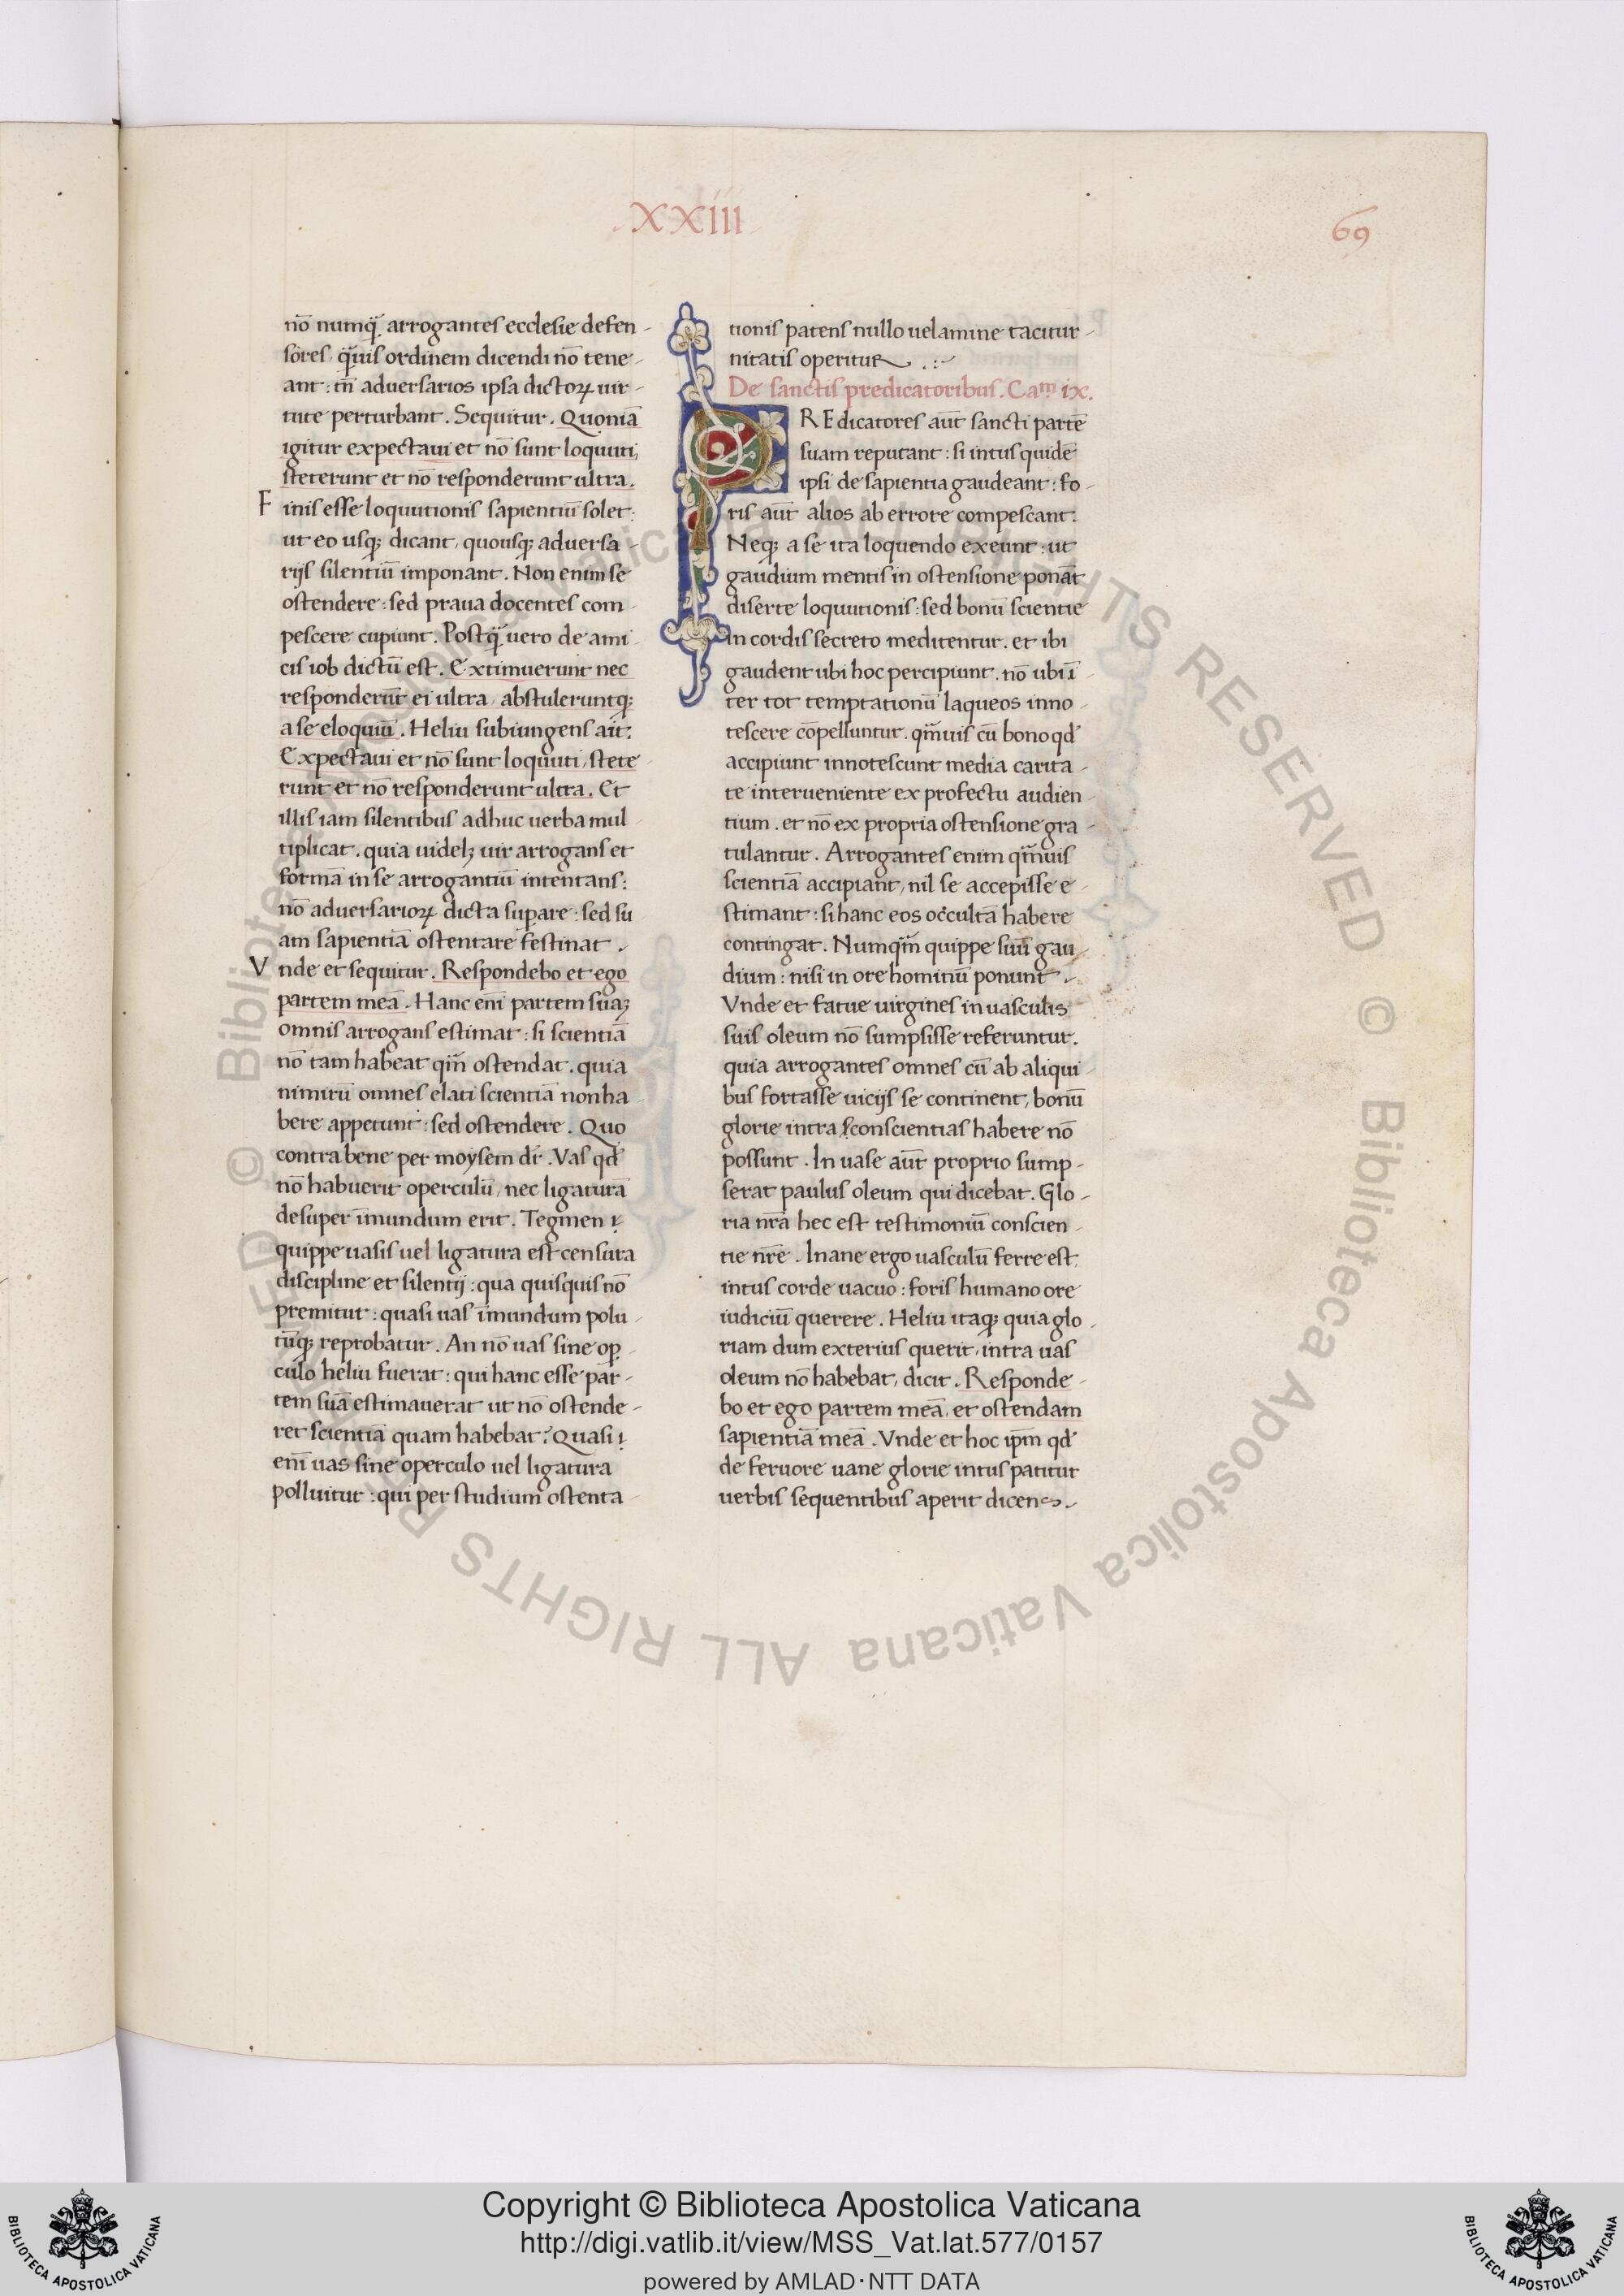 XXIII
69
nō numq̄ arrogantes ecclesie defen-
sores, q̄uis ordinem dicendi nō tene-
ant: tn̄ adversarios ipsa dictoꝝ uir-
tute perturbant. Sequitur. Quoniā
igitur expectaui et nō sunt loquuti,
steterunt et nō responderunt ultra.
Finis esse loquutionis sapientiū solet:
ut eo usqꝫ dicant, quousqꝫ adversa-
rijs silentiū imponant. Non enim se
ostendere: sed praua docentes com-
pescere cupiunt. Postq̄ uero de ami-
cis iob dictū est. Extimuerunt nec
responderūt ei ultra, abstuleruntqꝫ
a se eloquiū. Heliu subiungens ait.
Expectaui et nō sunt loquuti, stete-
runt et nō responderunt ultra. Et
illis iam silentibus adhuc uerba mul-
tiplicat. quia uidelꝫ uir arrogans et
formā in se arrogantiū intentans:
nō adversarioꝝ dicta suꝑare: sed su
am sapientiā ostentare festinat.
Vnde et sequitur. Respondebo et ego
partem meā. Hanc eni̅ partem suaꝫ
omnis arrogans estimat: si scientiā
nō tam habeat qm̄ ostendat. quia
nimirū omnes elati scientiā non ha-
bere appetunt: sed ostendere. Quo
contra bene per moysem dr̄. Vas qd̄
nō habuerit operculū, nec ligaturā
desuper īmundum erit. Tegmen
quippe uasis uel ligatura est censura
discipline et silentij: qua quisquis nō
premitur: quasi uas īmundum polu-
tūqꝫ reprobatur. An nō uas sine oꝑ-
culo heliu fuerat: qui hanc esse par-
tem suā estimauerat ut nō ostende-
ret scientiā quam habebat? Quasi
eni̅ uas sine operculo uel ligatura
polluitur: qui per studium ostenta-
tionis patens nullo uelamine tacitur-
nitatis operitur.
De sanctis predicatoribus. Caᵐ ix.
PREdicatores aūt sancti partē
suam reputant: si intus quidē
ipsi de sapientia gaudeant: fo-
ris aūt alios ab errore compescant.
Neqꝫ a se ita loquendo exeunt: ut
gaudium mentis in ostensione ponāt
diserte loquutionis: sed bonū scientie
in cordis secreto meditentur. et ibi
gaudent ubi hoc percipiunt. nō ubi ī
ter tot temptationū laqueos inno-
tescere cōpelluntur. qm̄uis cū bono qd̄
accipiunt innotescunt media carita-
te interueniente ex profectu audien-
tium. et nō ex propria ostensione gra-
tulantur. Arrogantes enim qm̄uis
scientiā accipiant, nil se accepisse e-
stimant: si hanc eos occultā habere
contingat. Numqm̄ quippe suū gau-
dium: nisi in ore hominū ponunt.
Vnde et fatue uirgines in uasculis
suis oleum nō sumpsisse referuntur.
quia arrogantes omnes cū ab aliqui-
bus fortasse uicijs se continent, bonū
glorie intra conscientias habere nō
possunt. In uase aūt proprio sump-
serat paulus oleum qui dicebat. Glo-
ria nr̄a hec est testimoniū conscien-
tie nr̄e. Inane ergo uasculū ferre est.
intus corde uacuo: foris humano ore
iudiciū querere. Heliu itaqꝫ quia glo-
riam dum exterius querit, intra uas
oleum nō habebat, dicit. Responde-
bo et ego partem meā, et ostendam
sapientiā meā. Vnde et hoc ip̄m qd̄
de feruore uane glorie intus patitur
uerbis sequentibus aperit dicens.
© Biblioteca Apostolica Vaticana ALL RIGHTS RESERVED © Biblioteca Apostolica Vaticana ALL RIGHTS RESERVED
Copyright © Biblioteca Apostolica Vaticana
http://digi.vatlib.it/view/MSS_Vat.lat.577/0157
powered by AMLAD·NTT DATA
BIBLIOTECA APOSTOLICA VATICANA
BIBLIOTECA APOSTOLICA VATICANA